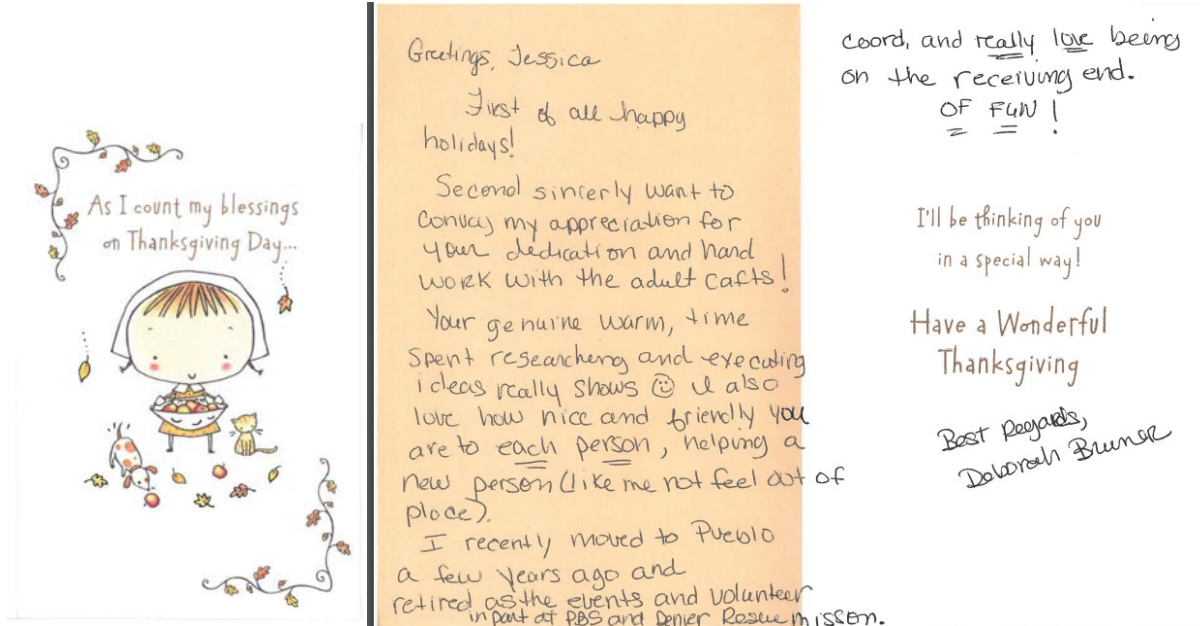 As I count my blessings
on Thanksgiving Day...
Greetings, Jessica
First of all happy
holidays!
Second sincerly want to
convay my appreciation for
your dedication and hard
work with the adult cafts!
Your genuine warm, time
spent researching and executing
ideas really shows ☺ I also
love how nice and friendly you
are to each person, helping a
new person (like me not feel out of
place).
I recently moved to Pueblo
a few years ago and
retired as the events and volunteer
in part at PBS and Denver Rescue misson.
coord, and really love being
on the receiving end.
OF FUN!
I'll be thinking of you
in a special way!
Have a Wonderful
Thanksgiving
Best Regards,
Deborah Bruner